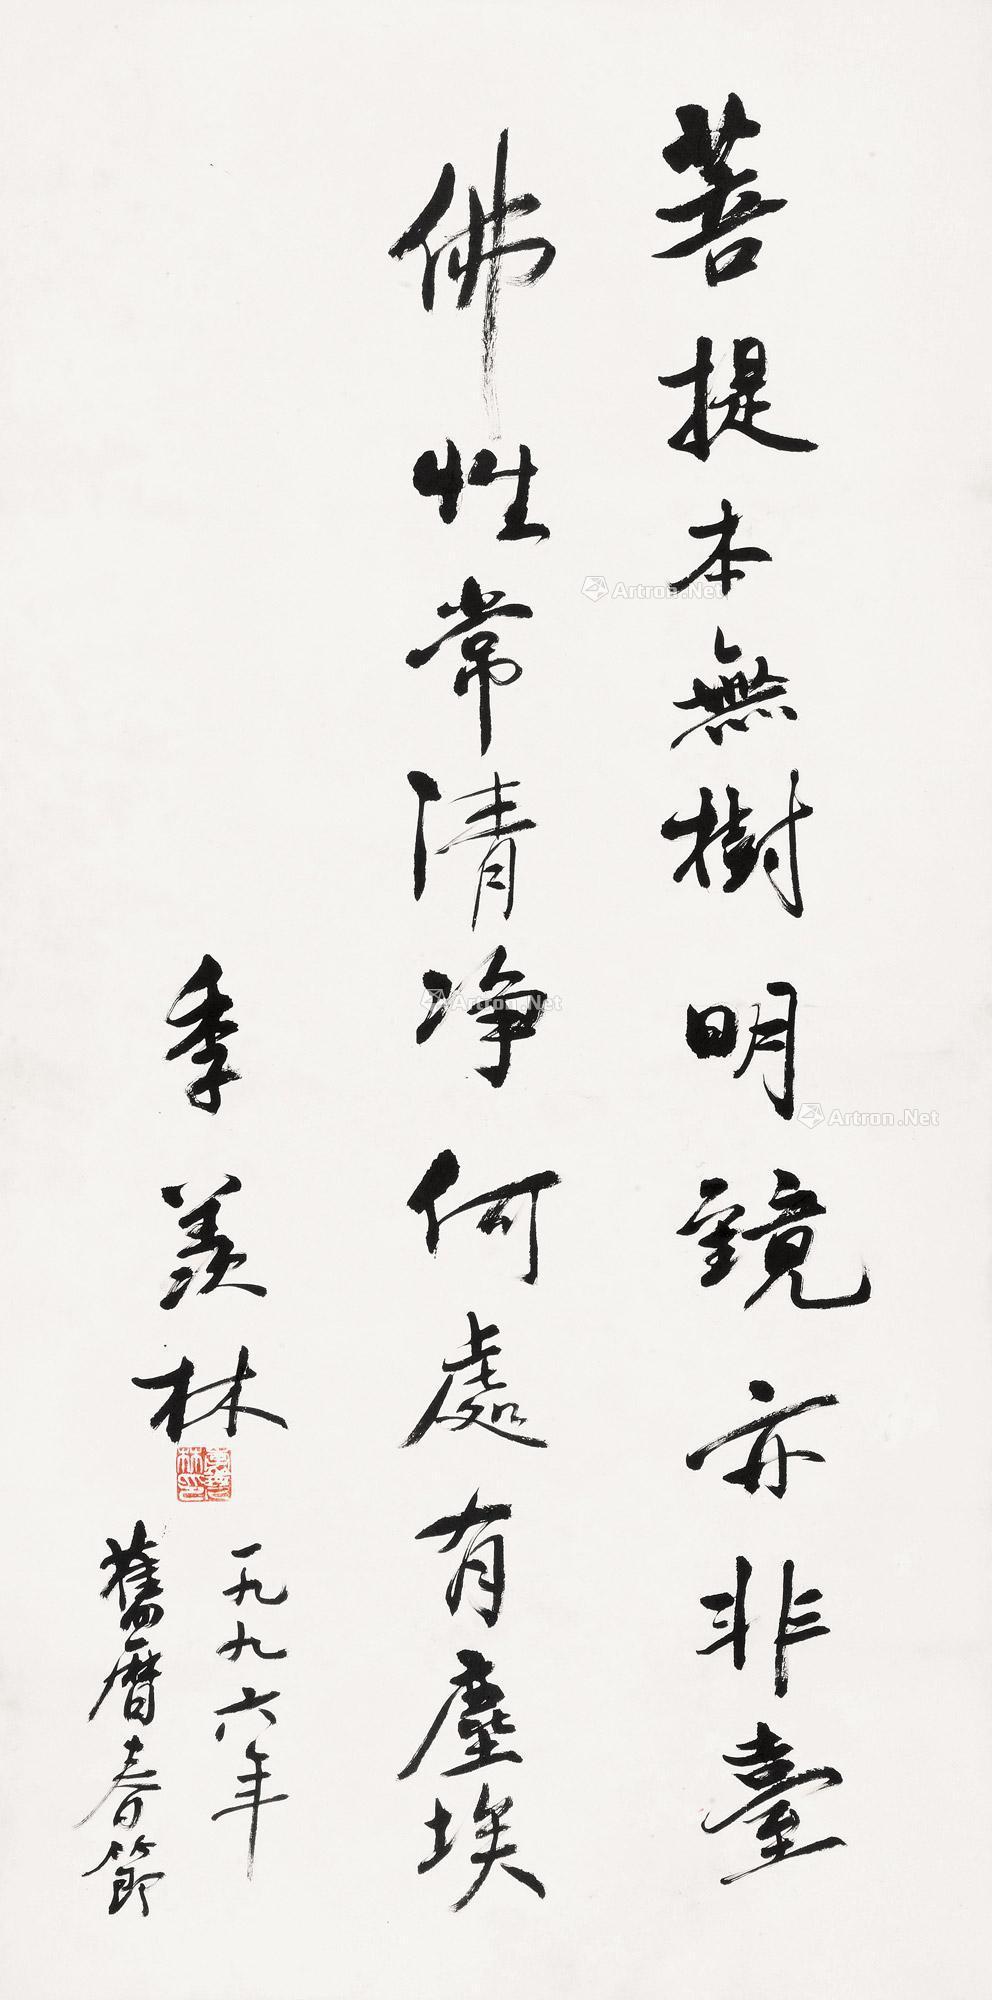 菩提本無樹明鏡亦非臺
佛性常清净何處有塵埃
季羡林
一九九六年
舊曆春節
Artron.Net
Artron.Net
Artron.Net